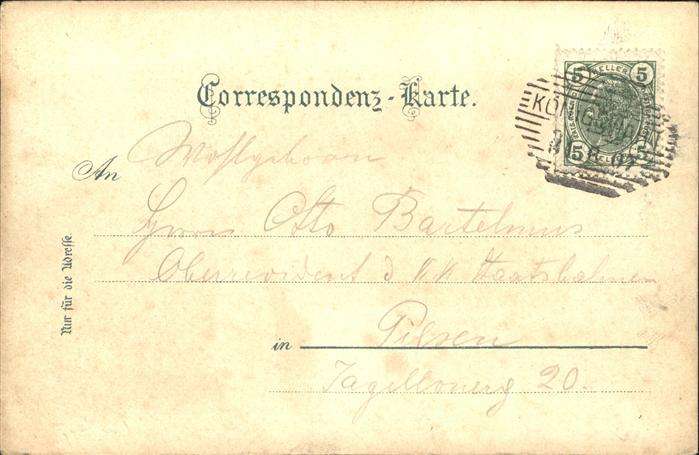 Correspondenz-Karte.
5 HELLER 5
5 HELLER 5
An
Wohlgeboren
Herrn Otto Bartelmus
Oberrevident d KK Staatsbahnen
in Pilsen
20.
Nur für die Adresse.